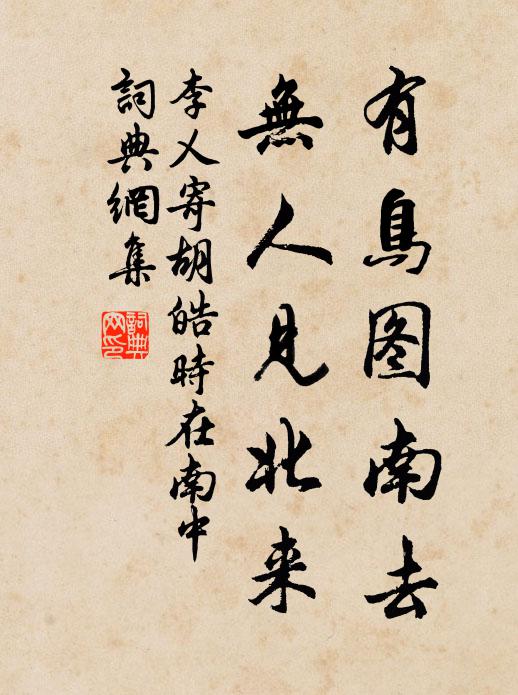 有鳥图南去
無人見北来
李乂寄胡皓時在南中
詞典網集
詞典网印